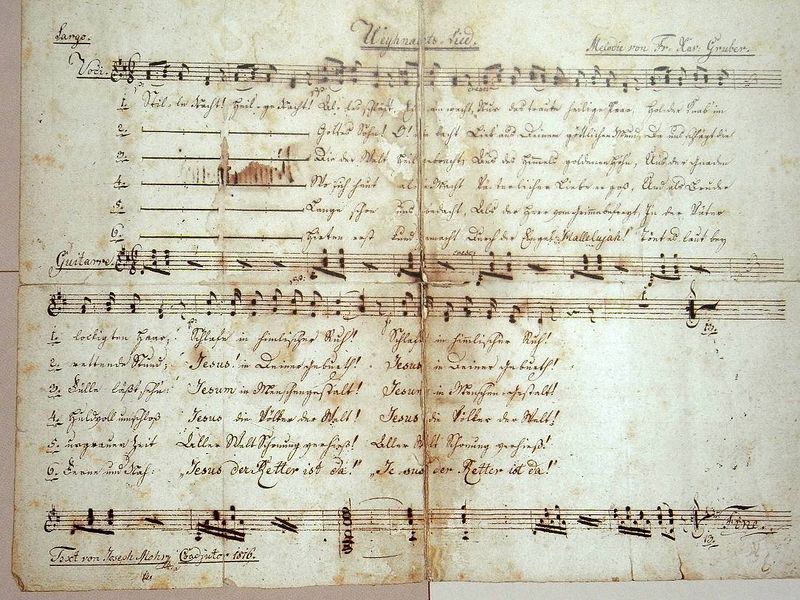 Largo.
Weyhnachts-Lied.
Melodie von Fr. Xav. Gruber.
Voci.
1. Stil-le Nacht! Heil-ge Nacht! Al-les schläft, wacht, Nur das traute heilige Paar, Holder Knab im
2. Gottes Sohn! O! lacht Lieb aus Deinem göttlichen Mund, Da uns schlägt die
3. Die der Welt Heil gebracht, Aus des Himmels goldenen Höhn, Aus der Gnaden
4. Wo sich heut alle Macht Väterlicher Liebe ergoß, Und als Bruder
5. Lange schon uns bedacht, Als der Herr vom Grimme befreyt, In der Väter
6. Hirten erst kundgemacht Durch der Engel Hallelujah! Tönt es laut bey
Guitarre.
1. lockigten Haar; Schlafe in himlischer Ruh! Schlafe in himlischer Ruh!
2. rettende Stund; Jesus! in Deiner Geburth! Jesus in Deiner Geburth!
3. Fülle läßt sehn: Jesum in Menschengestalt! Jesum in Menschengestalt!
4. Huldvoll umschloß Jesus die Völker der Welt! Jesus die Völker der Welt!
5. urgrauer Zeit Aller Welt Schonung verhieß! Aller Welt Schonung verhieß!
6. Ferne und Nah: „Jesus der Retter ist da!" „Jesus der Retter ist da!"
Fine.
Text von Joseph Mohr Coadjutor 1816.